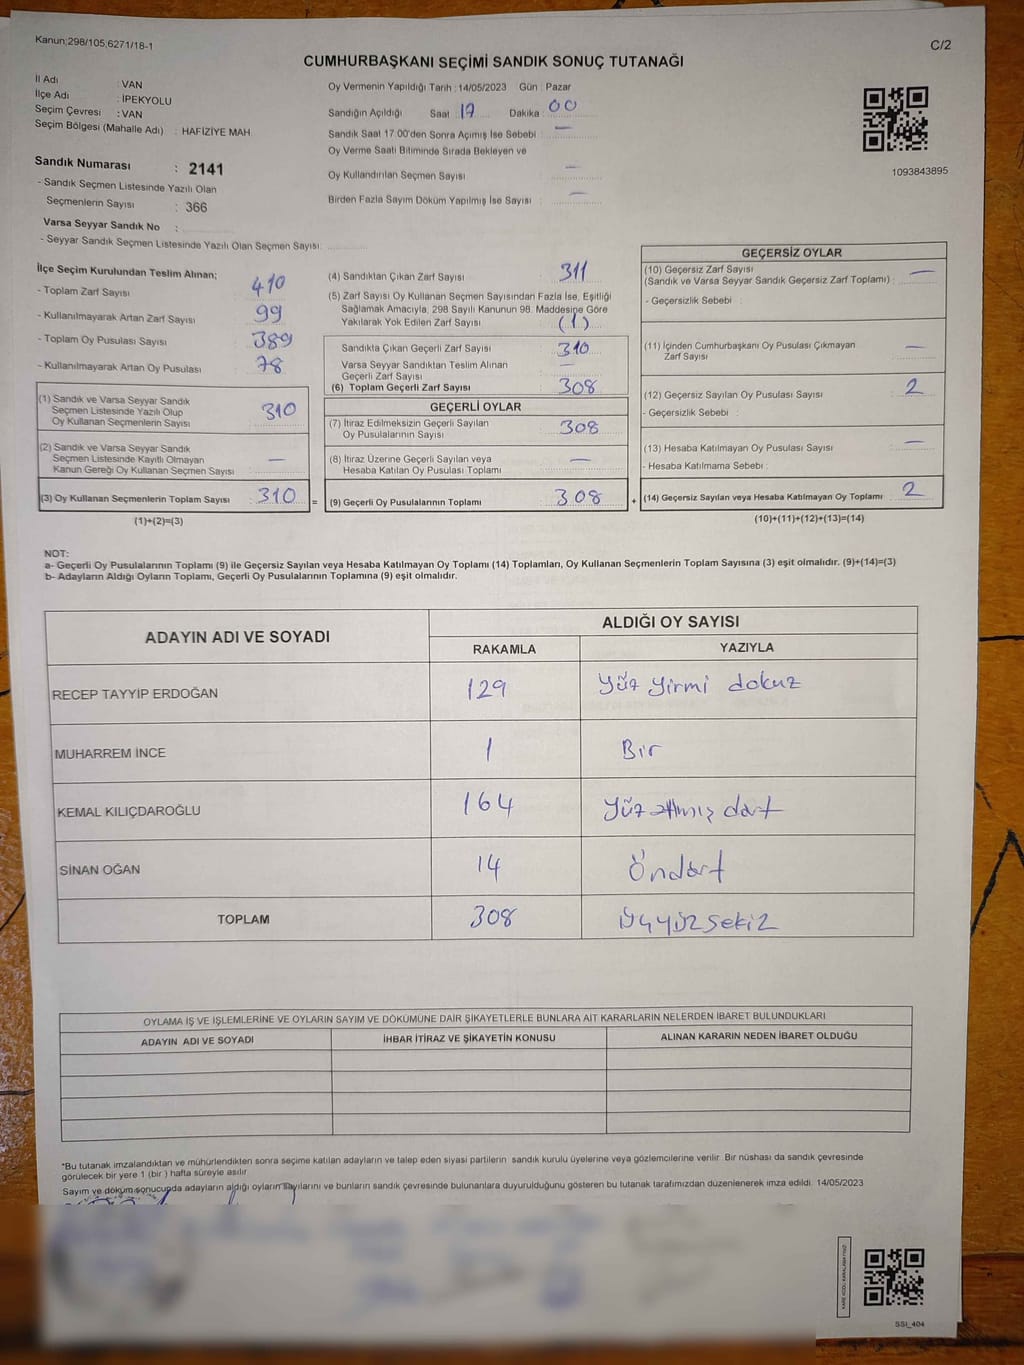 Kanun;298/105;6271/18-1
C/2
CUMHURBAŞKANI SEÇİMİ SANDIK SONUÇ TUTANAĞI
İl Adı : VAN
İlçe Adı : İPEKYOLU
Seçim Çevresi : VAN
Seçim Bölgesi (Mahalle Adı) : HAFİZİYE MAH.
Sandık Numarası : 2141
- Sandık Seçmen Listesinde Yazılı Olan
Seçmenlerin Sayısı : 366
Varsa Seyyar Sandık No :
- Seyyar Sandık Seçmen Listesinde Yazılı Olan Seçmen Sayısı:
Oy Vermenin Yapıldığı Tarih : 14/05/2023 Gün : Pazar
Sandığın Açıldığı Saat 17 Dakika : 00
Sandık Saat 17.00'den Sonra Açımış İse Sebebi : —
Oy Verme Saati Bitiminde Sırada Bekleyen ve
Oy Kullandırılan Seçmen Sayısı —
Birden Fazla Sayım Döküm Yapılmış İse Sayısı : —
1093843895
İlçe Seçim Kurulundan Teslim Alınan;
- Toplam Zarf Sayısı : 410
- Kullanılmayarak Artan Zarf Sayısı : 99
- Toplam Oy Pusulası Sayısı : 389
- Kullanılmayarak Artan Oy Pusulası : 78
(1) Sandık ve Varsa Seyyar Sandık
Seçmen Listesinde Yazılı Olup
Oy Kullanan Seçmenlerin Sayısı : 310
(2) Sandık ve Varsa Seyyar Sandık
Seçmen Listesinde Kayıtlı Olmayan
Kanun Gereği Oy Kullanan Seçmen Sayısı : —
(3) Oy Kullanan Seçmenlerin Toplam Sayısı : 310 =
(1)+(2)=(3)
(4) Sandıktan Çıkan Zarf Sayısı : 311
(5) Zarf Sayısı Oy Kullanan Seçmen Sayısından Fazla İse, Eşitliği
Sağlamak Amacıyla; 298 Sayılı Kanunun 98. Maddesine Göre
Yakılarak Yok Edilen Zarf Sayısı : (1)
Sandıkta Çıkan Geçerli Zarf Sayısı : 310
Varsa Seyyar Sandıktan Teslim Alınan
Geçerli Zarf Sayısı : —
(6) Toplam Geçerli Zarf Sayısı : 308
GEÇERLİ OYLAR
(7) İtiraz Edilmeksizin Geçerli Sayılan
Oy Pusulalarının Sayısı : 308
(8) İtiraz Üzerine Geçerli Sayılan veya
Hesaba Katılan Oy Pusulası Toplamı : —
(9) Geçerli Oy Pusulalarının Toplamı : 308 +
GEÇERSİZ OYLAR
(10) Geçersiz Zarf Sayısı
(Sandık ve Varsa Seyyar Sandık Geçersiz Zarf Toplamı) : —
- Geçersizlik Sebebi :
(11) İçinden Cumhurbaşkanı Oy Pusulası Çıkmayan
Zarf Sayısı : —
(12) Geçersiz Sayılan Oy Pusulası Sayısı : 2
- Geçersizlik Sebebi :
(13) Hesaba Katılmayan Oy Pusulası Sayısı : —
- Hesaba Katılmama Sebebi :
(14) Geçersiz Sayılan veya Hesaba Katılmayan Oy Toplamı : 2
(10)+(11)+(12)+(13)=(14)
NOT:
a- Geçerli Oy Pusulalarının Toplamı (9) ile Geçersiz Sayılan veya Hesaba Katılmayan Oy Toplamı (14) Toplamları, Oy Kullanan Seçmenlerin Toplam Sayısına (3) eşit olmalıdır. (9)+(14)=(3)
b- Adayların Aldığı Oyların Toplamı, Geçerli Oy Pusulalarının Toplamına (9) eşit olmalıdır.
ADAYIN ADI VE SOYADI ALDIĞI OY SAYISI
RAKAMLA YAZIYLA
RECEP TAYYİP ERDOĞAN 129 Yüz yirmi dokuz
MUHARREM İNCE 1 Bir
KEMAL KILIÇDAROĞLU 164 Yüz atmış dört
SİNAN OĞAN 14 Öndört
TOPLAM 308 Üçyüzsekiz
OYLAMA İŞ VE İŞLEMLERİNE VE OYLARIN SAYIM VE DÖKÜMÜNE DAİR ŞİKAYETLERLE BUNLARA AİT KARARLARIN NELERDEN İBARET BULUNDUKLARI
ADAYIN ADI VE SOYADI İHBAR İTİRAZ VE ŞİKAYETİN KONUSU ALINAN KARARIN NEDEN İBARET OLDUĞU
*Bu tutanak imzalandıktan ve mühürlendikten sonra seçime katılan adayların ve talep eden siyasi partilerin sandık kurulu üyelerine veya gözlemcilerine verilir. Bir nüshası da sandık çevresinde
görülecek bir yere 1 (bir ) hafta süreyle asılır.
Sayım ve döküm sonucunda adayların aldığı oyların sayılarını ve bunların sandık çevresinde bulunanlara duyurulduğunu gösteren bu tutanak tarafımızdan düzenlenerek imza edildi. 14/05/2023
SSI_404